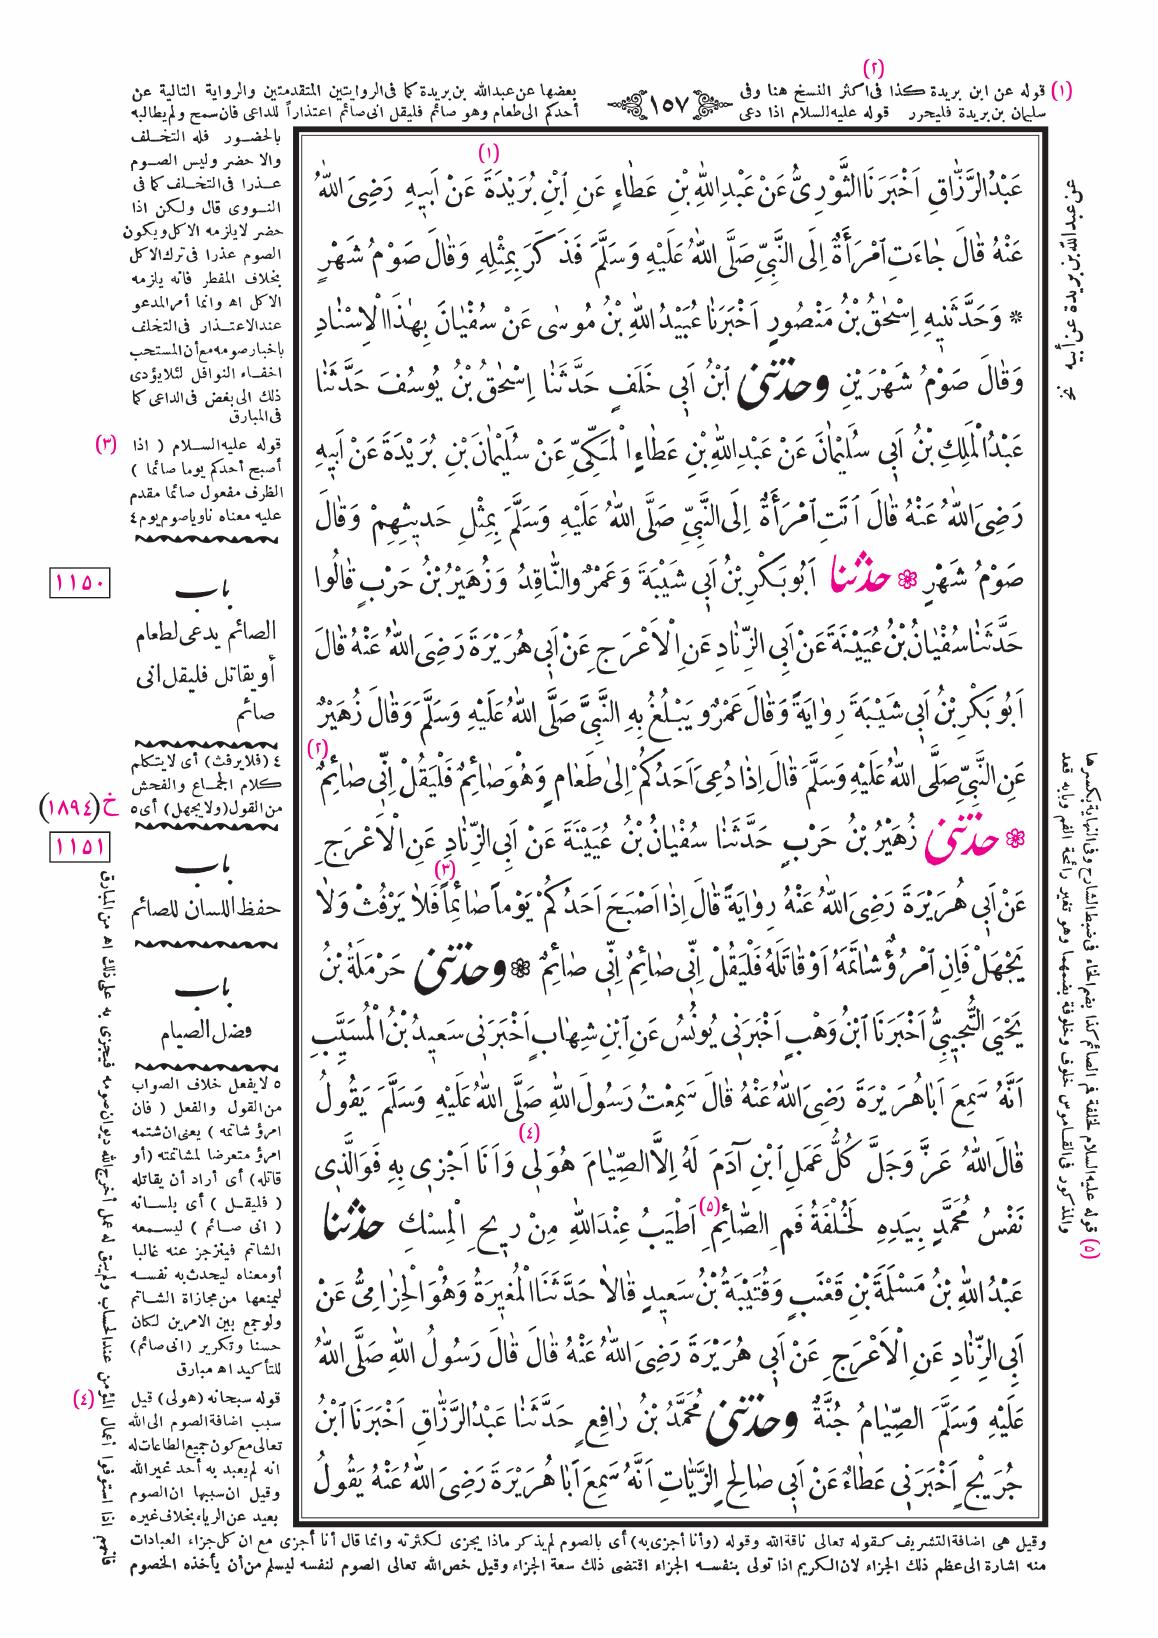 (٢)
(١) قوله عن ابن بريدة كذا فى اكثر النسخ هنا وفى
سليمان بن بريدة فليحرر قوله عليه السلام اذا دعى
١٥٧
بعضها عن عبدالله بن بريدة كما فى الروايتين المتقدمتين والرواية التالية عن
أحدكم الى طعام وهو صائم فليقل انى صائم اعتذاراً للداعى فان سمح ولم يطالبه
(١)
عَبْدُ الرَّزَّاقِ اَخْبَرَنَا الثَّوْرِىُّ عَنْ عَبْدِ اللّٰهِ بْنِ عَطَاءٍ عَنِ ابْنِ بُرَيْدَةَ عَنْ اَبِيهِ رَضِىَ اللّٰهُ
عَنْهُ قَالَ جَاءَتِ امْرَأَةٌ اِلَى النَّبِىِّ صَلَّى اللّٰهُ عَلَيْهِ وَسَلَّمَ فَذَكَرَ بِمِثْلِهِ وَقَالَ صَوْمُ شَهْرٍ
* وَحَدَّثَنِيهِ اِسْحٰقُ بْنُ مَنْصُورٍ اَخْبَرَنَا عُبَيْدُ اللّٰهِ بْنُ مُوسٰى عَنْ سُفْيَانَ بِهٰذَا الْاِسْنَادِ
وَقَالَ صَوْمُ شَهْرَيْنِ وحدثنى ابْنُ اَبِى خَلَفٍ حَدَّثَنَا اِسْحٰقُ بْنُ يُوسُفَ حَدَّثَنَا
عَبْدُ الْمَلِكِ بْنُ اَبِى سُلَيْمَانَ عَنْ عَبْدِ اللّٰهِ بْنِ عَطَاءٍ الْمَكِّىِّ عَنْ سُلَيْمَانَ بْنِ بُرَيْدَةَ عَنْ اَبِيهِ
رَضِىَ اللّٰهُ عَنْهُ قَالَ اَتَتِ امْرَأَةٌ اِلَى النَّبِىِّ صَلَّى اللّٰهُ عَلَيْهِ وَسَلَّمَ بِمِثْلِ حَدِيثِهِمْ وَقَالَ
صَوْمُ شَهْرٍ ❁ حدثنا اَبُو بَكْرِ بْنُ اَبِى شَيْبَةَ وَعَمْرٌو النَّاقِدُ وَزُهَيْرُ بْنُ حَرْبٍ قَالُوا
حَدَّثَنَا سُفْيَانُ بْنُ عُيَيْنَةَ عَنْ اَبِى الزِّنَادِ عَنِ الْاَعْرَجِ عَنْ اَبِى هُرَيْرَةَ رَضِىَ اللّٰهُ عَنْهُ قَالَ
اَبُو بَكْرِ بْنُ اَبِى شَيْبَةَ رِوَايَةً وَقَالَ عَمْرٌو يَبْلُغُ بِهِ النَّبِىَّ صَلَّى اللّٰهُ عَلَيْهِ وَسَلَّمَ وَقَالَ زُهَيْرٌ
عَنِ النَّبِىِّ صَلَّى اللّٰهُ عَلَيْهِ وَسَلَّمَ قَالَ اِذَا دُعِىَ اَحَدُكُمْ اِلٰى طَعَامٍ وَهُوَ صَائِمٌ فَلْيَقُلْ اِنِّى صَائِمٌ (٢)
❁ حدثنى زُهَيْرُ بْنُ حَرْبٍ حَدَّثَنَا سُفْيَانُ بْنُ عُيَيْنَةَ عَنْ اَبِى الزِّنَادِ عَنِ الْاَعْرَجِ
عَنْ اَبِى هُرَيْرَةَ رَضِىَ اللّٰهُ عَنْهُ رِوَايَةً قَالَ اِذَا اَصْبَحَ اَحَدُكُمْ يَوْماً صَائِماً (٣) فَلَا يَرْفُثْ وَلَا
يَجْهَلْ فَاِنِ امْرُؤٌ شَاتَمَهُ اَوْ قَاتَلَهُ فَلْيَقُلْ اِنِّى صَائِمٌ اِنِّى صَائِمٌ ❁ وحدثنى حَرْمَلَةُ بْنُ
يَحْيَى التُّجِيبِىُّ اَخْبَرَنَا ابْنُ وَهْبٍ اَخْبَرَنِى يُونُسُ عَنِ ابْنِ شِهَابٍ اَخْبَرَنِى سَعِيدُ بْنُ الْمُسَيَّبِ
اَنَّهُ سَمِعَ اَبَا هُرَيْرَةَ رَضِىَ اللّٰهُ عَنْهُ قَالَ سَمِعْتُ رَسُولَ اللّٰهِ صَلَّى اللّٰهُ عَلَيْهِ وَسَلَّمَ يَقُولُ
(٤)
قَالَ اللّٰهُ عَزَّ وَجَلَّ كُلُّ عَمَلِ ابْنِ آدَمَ لَهُ اِلَّا الصِّيَامَ هُوَ لِى وَاَنَا اَجْزِى بِهِ فَوَ الَّذِى
نَفْسُ مُحَمَّدٍ بِيَدِهِ لَخُلْفَةُ فَمِ الصَّائِمِ (٥) اَطْيَبُ عِنْدَ اللّٰهِ مِنْ رِيحِ الْمِسْكِ حدثنا
عَبْدُ اللّٰهِ بْنُ مَسْلَمَةَ بْنِ قَعْنَبٍ وَقُتَيْبَةُ بْنُ سَعِيدٍ قَالَا حَدَّثَنَا الْمُغِيرَةُ وَهُوَ الْحِزَامِىُّ عَنْ
اَبِى الزِّنَادِ عَنِ الْاَعْرَجِ عَنْ اَبِى هُرَيْرَةَ رَضِىَ اللّٰهُ عَنْهُ قَالَ قَالَ رَسُولُ اللّٰهِ صَلَّى اللّٰهُ
عَلَيْهِ وَسَلَّمَ الصِّيَامُ جُنَّةٌ وحدثنى مُحَمَّدُ بْنُ رَافِعٍ حَدَّثَنَا عَبْدُ الرَّزَّاقِ اَخْبَرَنَا ابْنُ
جُرَيْجٍ اَخْبَرَنِى عَطَاءٌ عَنْ اَبِى صَالِحٍ الزَّيَّاتِ اَنَّهُ سَمِعَ اَبَا هُرَيْرَةَ رَضِىَ اللّٰهُ عَنْهُ يَقُولُ
عن عبدالله بن بريدة عن أبيه نخ
(٥) قوله عليه السلام لخلفة فم الصائم كذا بضم الخاء فى ضبط الشارح وفى النهاية بكسرها
والمذكور فى القاموس خلوف وخلوفة بضمهما وهو تغير رائحة الفم وبابه قعد
بالحضور فله التخلف
والا حضر وليس الصوم
عذرا فى التخلف كما فى
النووى قال ولكن اذا
حضر لا يلزمه الاكل ويكون
الصوم عذرا فى ترك الاكل
بخلاف المفطر فانه يلزمه
الاكل اه وانما أمر المدعو
عند الاعتذار فى التخلف
باخبار صومه مع أن المستحب
اخفاء النوافل لئلا يؤدى
ذلك الى بغض فى الداعى كما
فى المبارق
(٣) قوله عليه السلام ( اذا
أصبح أحدكم يوما صائما )
الظرف مفعول صائما مقدم
عليه معناه ناويا صوم يوم ٤
١١٥٠
باب
الصائم يدعى لطعام
أو يقاتل فليقل انى
صائم
٤ (فلا يرفث) أى لا يتكلم
كلام الجماع والفحش
من القول (ولا يجهل) أى ٥
خ (١٨٩٤)
١١٥١
باب
حفظ اللسان للصائم
باب
فضل الصيام
٥ لا يفعل خلاف الصواب
من القول والفعل ( فان
امرؤ شاتمه ) يعنى ان شتمه
امرؤ متعرضا لمشاتمته (أو
قاتله) أى أراد أن يقاتله
( فليقل ) أى بلسانه
( انى صائم ) ليسمعه
الشاتم فينزجر عنه غالبا
أو معناه ليحدث به نفسه
ليمنعها من مجازاة الشاتم
ولو جمع بين الامرين لكان
حسنا وتكرير (انى صائم)
للتأكيد اه مبارق
(٤) قوله سبحانه (هو لى) قيل
سبب اضافة الصوم الى الله
تعالى مع كون جميع الطاعات له
انه لم يعبد به أحد غير الله
وقيل ان سببها ان الصوم
بعيد عن الرياء بخلاف غيره
وقيل هى اضافة التشريف كقوله تعالى ناقة الله وقوله (وأنا أجزى به) أى بالصوم لم يذكر ماذا يجزى لكثرته وانما قال أنا أجزى مع ان كل جزاء العبادات
منه اشارة الى عظم ذلك الجزاء لان الكريم اذا تولى بنفسه الجزاء اقتضى ذلك سعة الجزاء وقيل خص الله تعالى الصوم لنفسه ليسلم من أن يأخذه الخصوم
فانهم اذا استوفوا أعمال المؤمن عند الحساب ولم يبق له عمل أخرج الله ديوان صومه فيجزى به على ذلك اه من المبارق